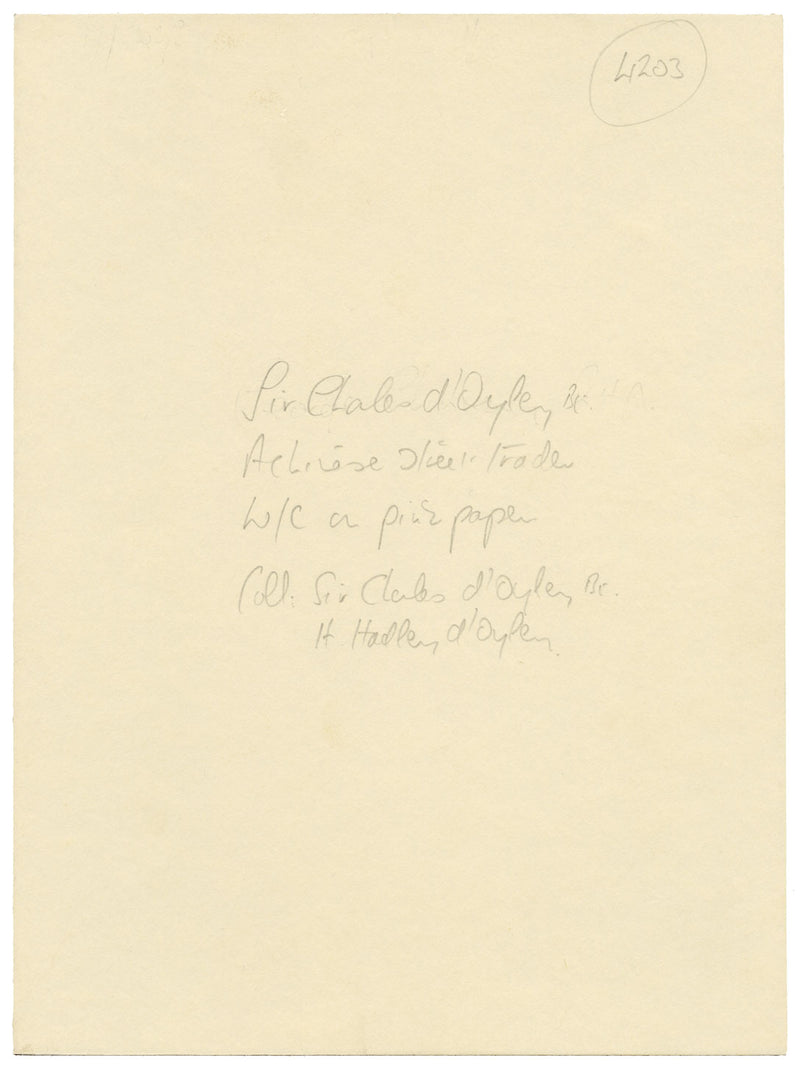 4203
Sir Charles d'Oyley Bt.
A Chinese Street Trader
W/C on pink paper
Coll: Sir Charles d'Oyley Bt.
H. Hadley d'Oyley